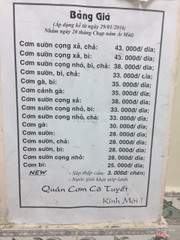 Bảng Giá
(Áp dụng kể từ ngày 29/01/2016)
Nhằm ngày 20 tháng Chạp năm Ất Mùi)
Cơm sườn cọng xả, chả: 43. 000đ/ dĩa;
Cơm sườn cọng xả, bì: 43. 000đ/ dĩa;
Cơm sườn cọng nhỏ, bì, chả: 38. 000đ/ dĩa;
Cơm sườn, bì, chả: 33. 000đ/ dĩa;
Cơm gà, bì: 35. 000đ/ dĩa;
Cơm cánh gà: 35. 000đ/ dĩa;
Cơm sườn cọng xả: 38. 000đ/ dĩa;
Cơm sườn cọng nhỏ, chả: 33. 000đ/ dĩa;
Cơm sườn cọng nhỏ, bì: 33. 000đ/ dĩa;
Cơm sườn, chả: 28. 000đ/ dĩa;
Cơm sườn, bì: 28. 000đ/ dĩa;
Cơm sườn: 25. 000đ/ dĩa;
Cơm bì: 25. 000đ/ dĩa;
NEW - Súp thập cẩm: 3. 000đ/ chén;
- Nước giải khát ướp lạnh
Quán Cơm Cô Tuyết
Kính Mời !